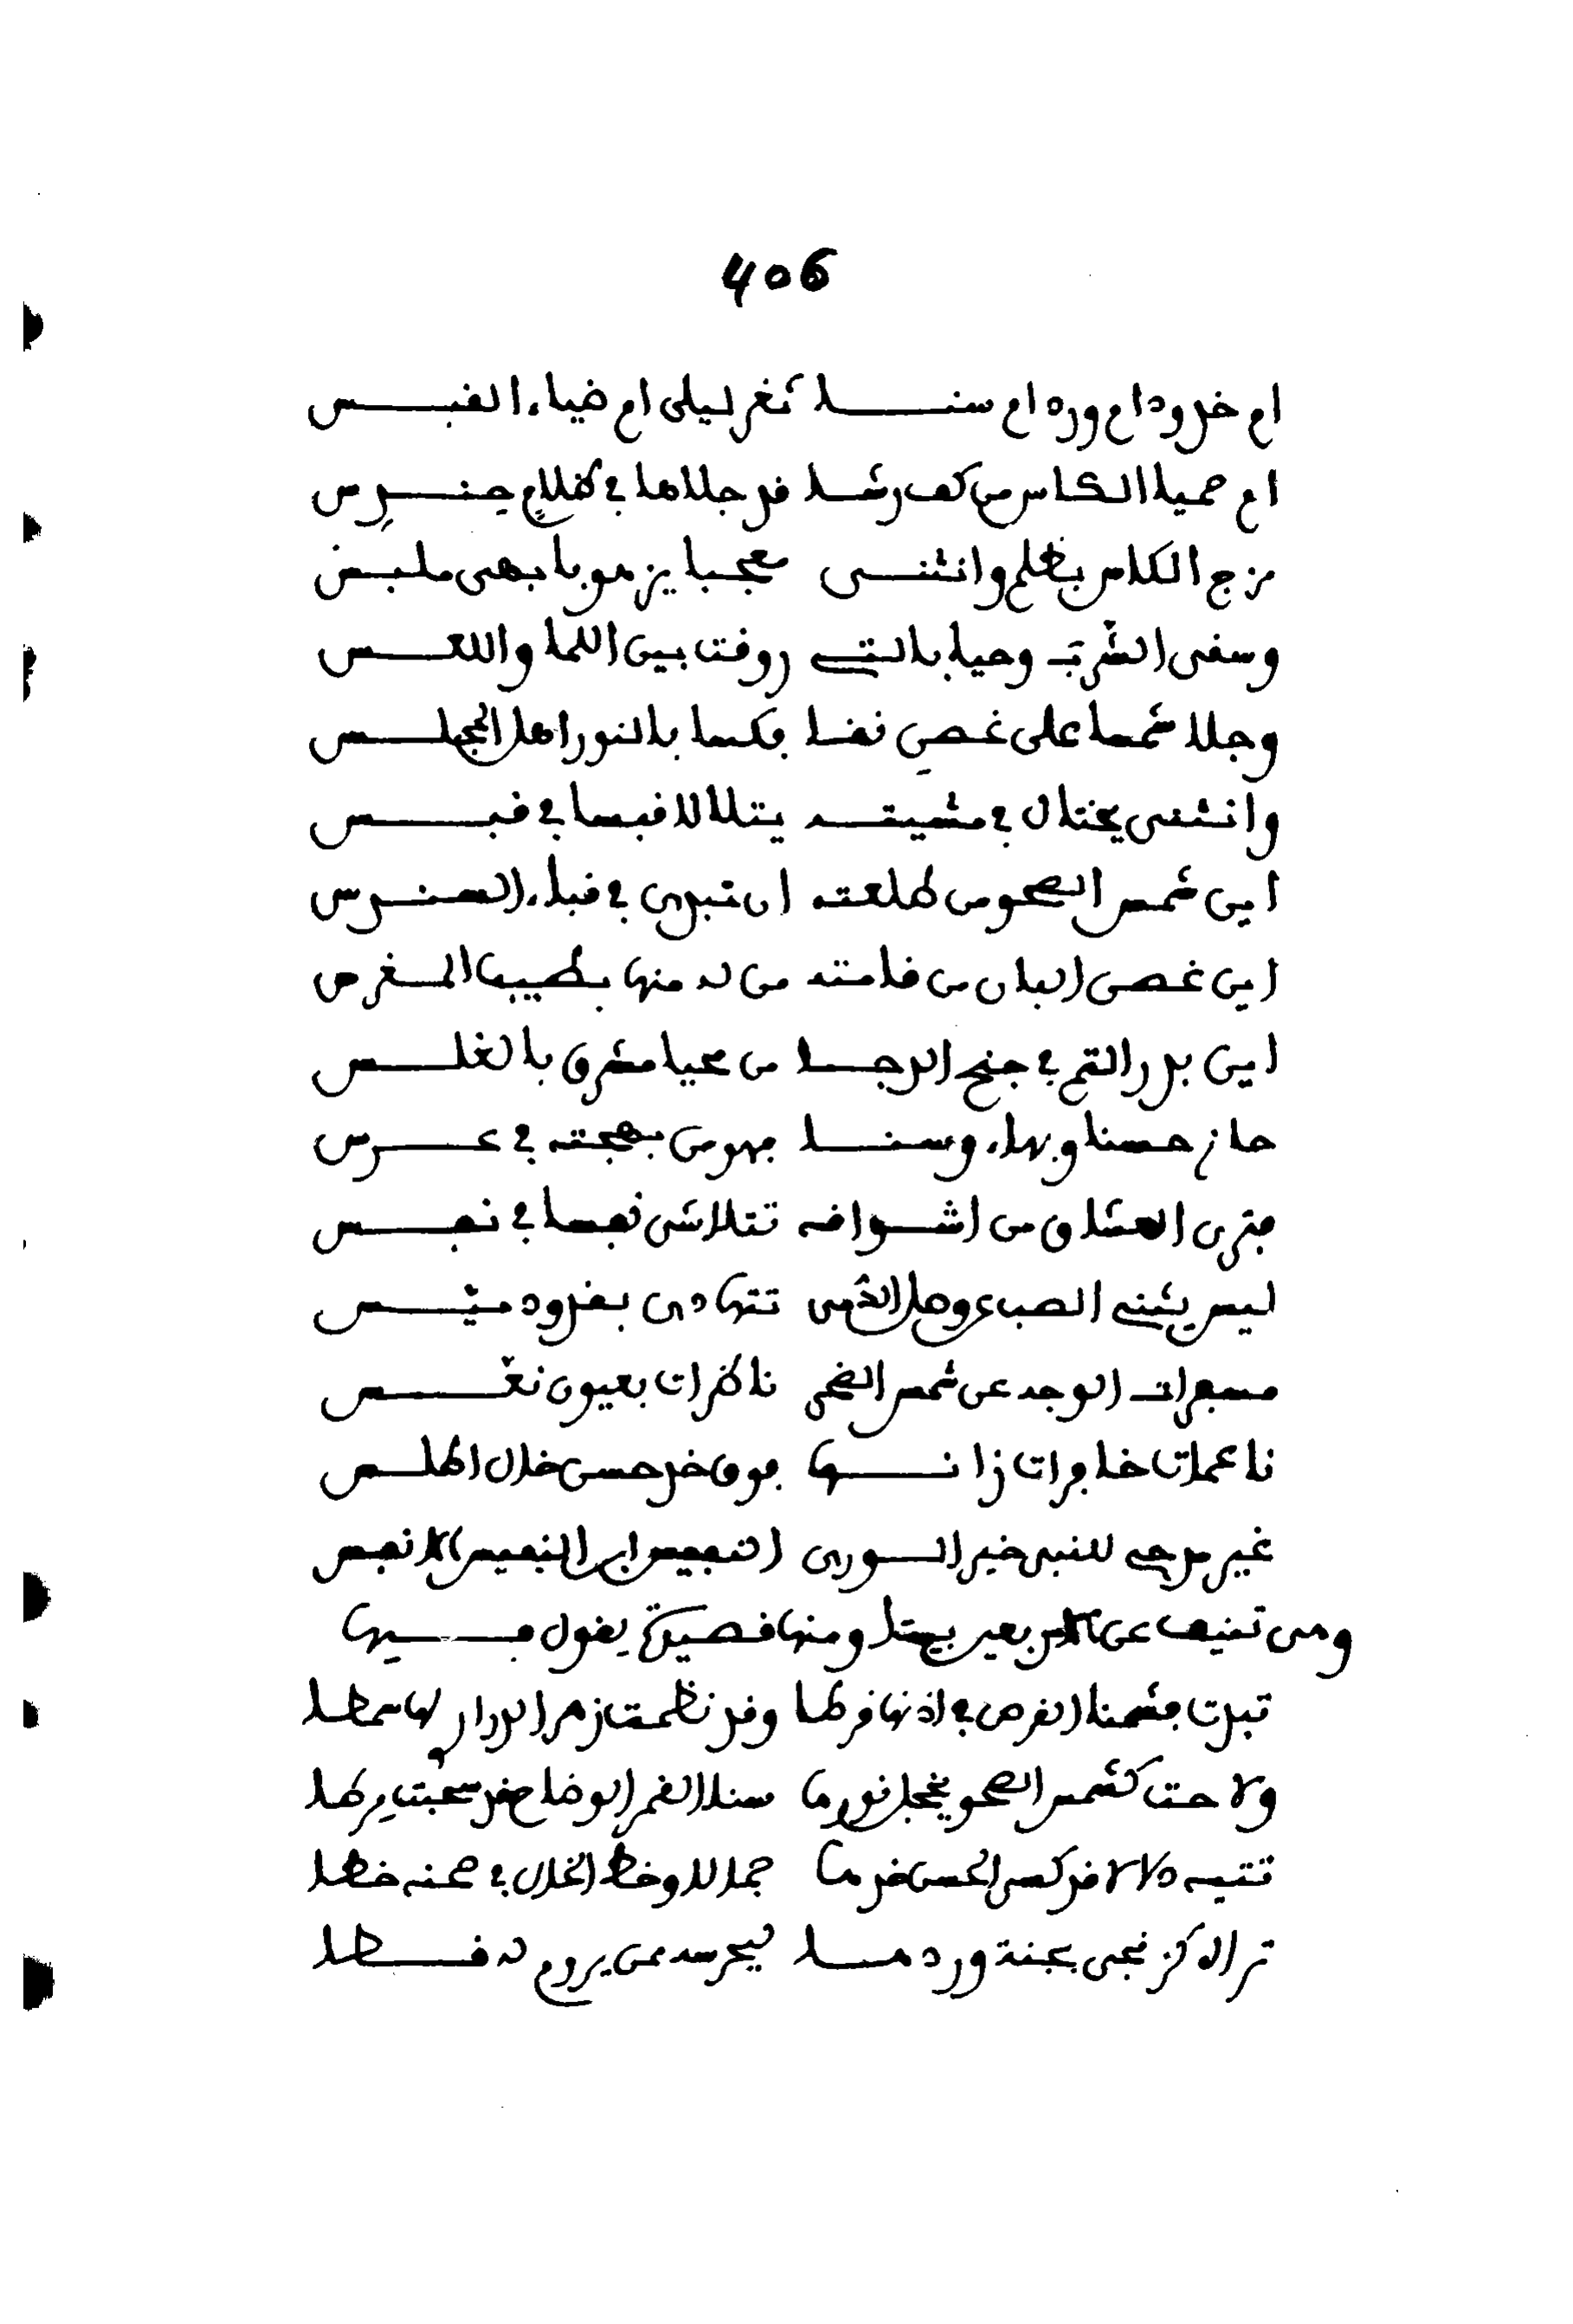 406
ام خدود ام ورد ام سنا ثغر ليلى ام ضياء القبس
ام حميا الكاس من كف رشا قد جلاها في ظلام حندس
مزج الكاس بظلم وانثنى معجبا يزهو بابهى ملبس
وسقى الشرب وحيا بالتي روقت بين اللما واللعس
وجلا شمسا على غصن نقا فكسا بالنور اهل المجلس
وانثنى يختال في مشيته يتلالا قبسا في قبس
اين شمس الصحو من طلعته ان تبدى في قباء السندس
اين غصن البان من قامته من له منها بطيب المغرس
اين بدر التم في جنح الدجا من محيا مشرق بالغلس
حاز حسنا وبهاء وسنا فهو من بهجته في عرس
فترى العشاق من اشواقه تتلاشى نفسا في نفس
ليس يثني الصب عن وصل الدمى تتهادى بقدود ميس
مسفرات الوجد عن شمس الضحى ناظرات بعيون نعس
ناعمات خافرات زانها فوق خد حسن خال اطلس
غير مدحي للنبي خير الورى النفيس ابن النفيس الانفس
وهي تنيف عن الاربعين بيتا ومنها قصيدة يقول فيها
تبدت فشمنا القرص في اذنها قرطا وقد نظمت زهر الدرار لها سمطا
ولاحت كشمس الصحو يخجل نورها سنا القمر الوضاح قد سحبت مرطا
تتيه دلالا قد كسى الحسن خدها جمالا وخط الخال في صحنه خطا
تراه كزنجي بجنة ورد ها ليحرسه ممن يروم له قطا